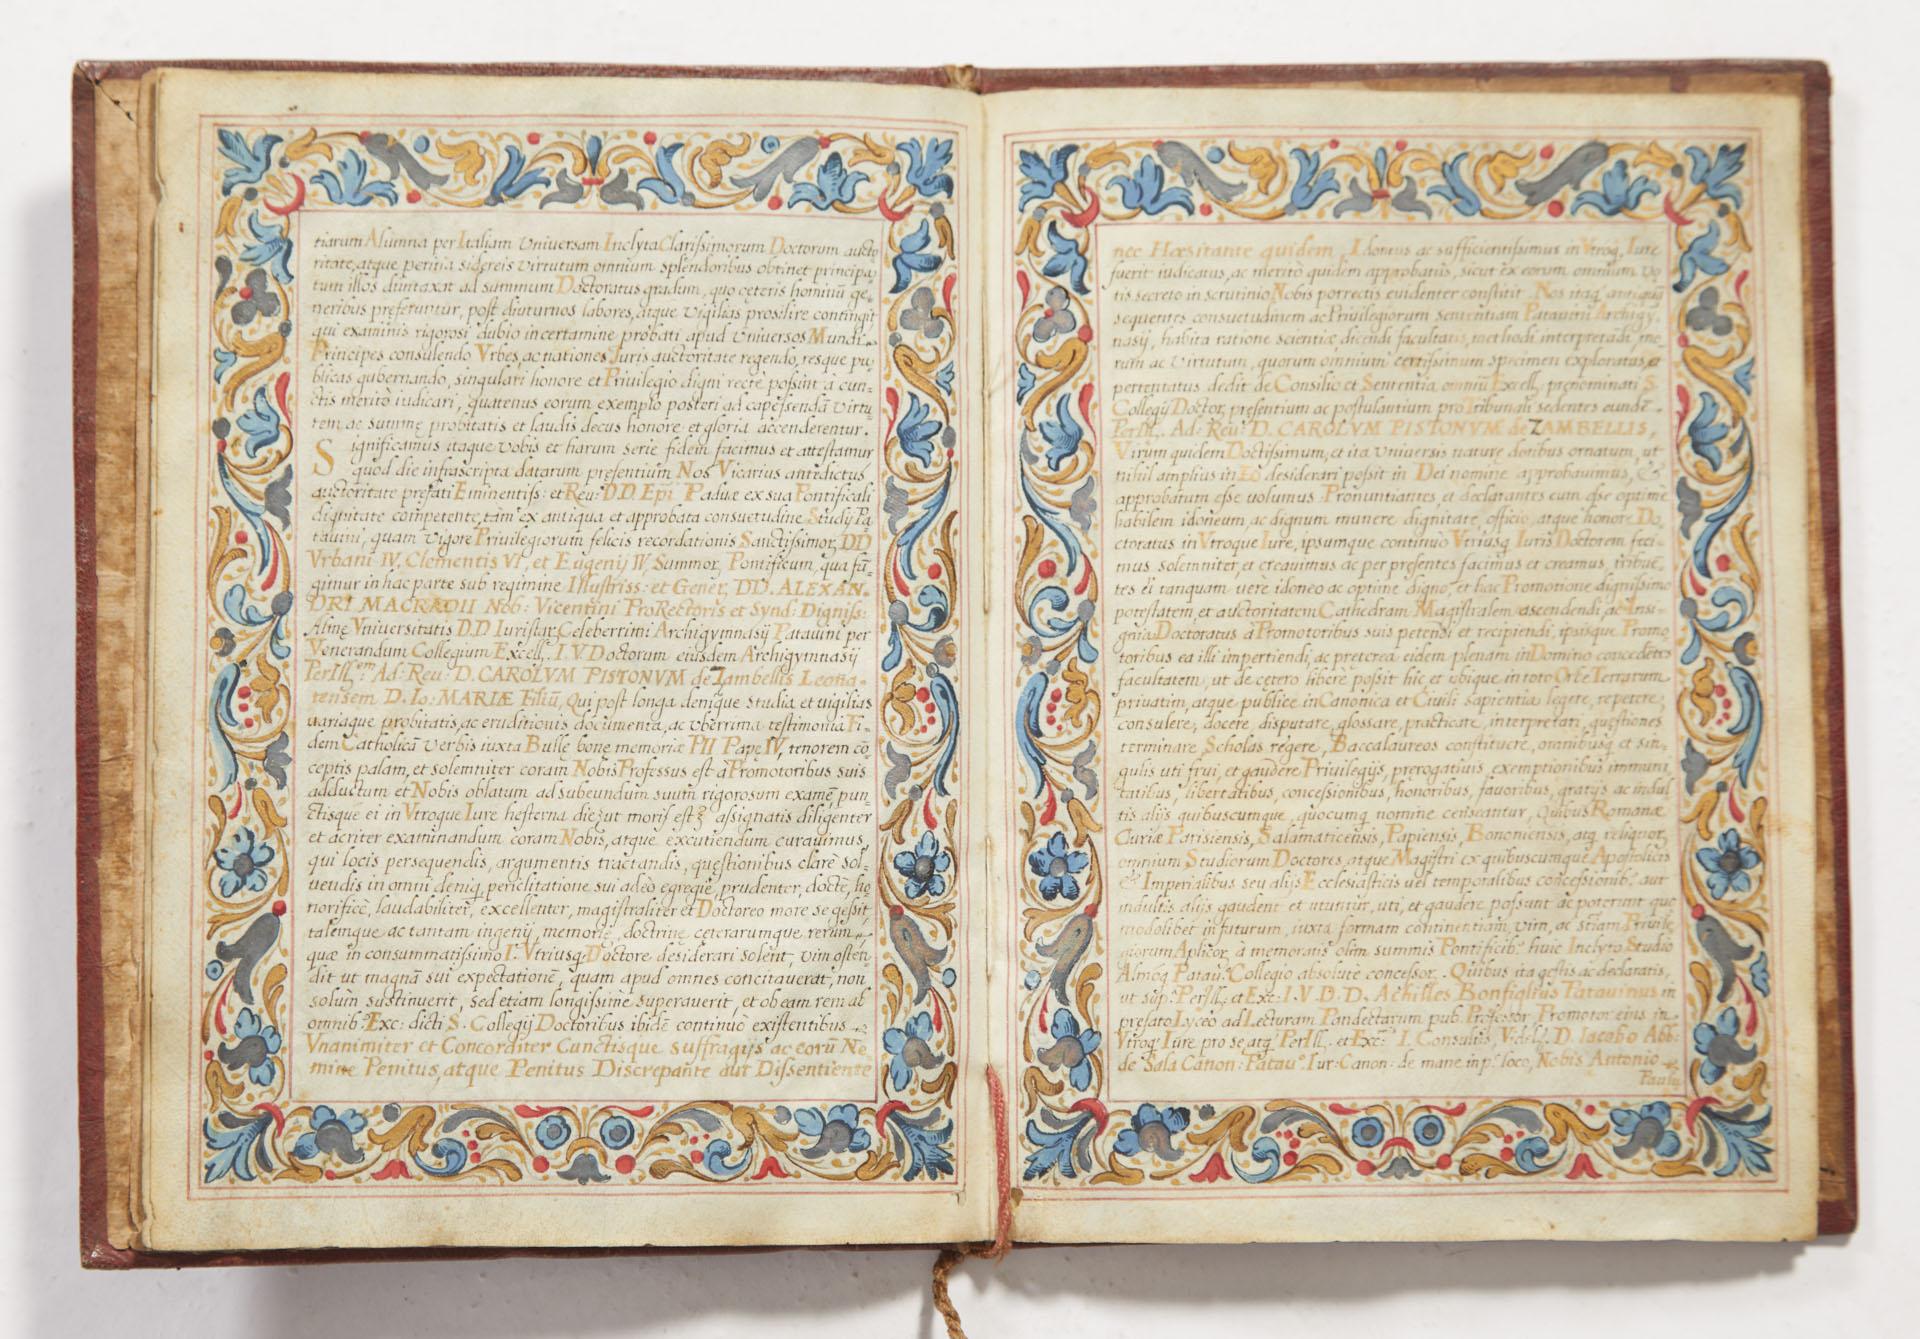 tiarum Alumna per Italiam Universam Inclyta Clarissimorum Doctorum aucto
ritate, atque peritia sidereis virtutum omnium splendoribus obtinet principa-
tum illos duntaxat ad summum Doctoratus gradum, quo cęteris hominũ ge-
neribus prefeřuntur, post diuturnos labores, atque vigilias prosilire contingit,
qui examinis rigorosi dubio in certamine probati apud universos Mundi
Principes consulendo Vrbes, ac nationes Juris auctoritate regendo, resque pu-
blicas gubernando, singulari honore et Privilegio digni rectè possint à cun-
ctis merito iudicari, quatenus eorum exemplo posteri ad capessendã virtu-
tem ac summę probitatis et laudis decus honore et gloria accenderentur.
Significamus itaque vobis et harum serie fidem facimus et attestamur
quod die infrascripta datarum pręsentium Nos Vicarius antedictus
auctoritate prefati Eminentiss: et Reu: D.D. Epi Paduæ ex sua Pontificali
dignitate competente, tàm ex antiqua et approbata consuetudine Studij Pa-
tauini, quam vigore Privilegiorum felicis recordationis Sanctissimor, DD
Vrbani IV. Clementis VI, et Eugenij IV. Summor, Pontificum, qua fũ-
gimur in hac parte sub regimine Illustriss: et Gener, DD. ALEXAN-
DRI MACRADII Nob: Vicentini ProRectoris et Synd: Digniss:
Almę Vniuersitatis D.D Iuristar, Celeberrimi Archigymnasij Patauini per
Venerandum Collegium Excell. I.V Doctorum eiusdem Archigymnasij
PerIll.em Ad: Reu: D. CAROLVM PISTONVM de Zambellis Leona-
tensem D. Io: MARIÆ Filiũ, Qui post longa denique studia et uigilias
uariaque probitatis, ac eruditionis documenta, ac vberrima testimonia Fi-
dem Catholicã verbis iuxta Bullę bonę memoriæ PII Papę IV, tenorem cõ-
ceptis palam, et solemniter coram Nobis Professus est à Promotoribus suis
adductum et Nobis oblatum ad subeundum suum rigorosum examẽ, pun-
ctisque ei in Vtroque Iure hesterna die, ut moris est, assignatis diligenter
et acriter examinandum coram Nobis, atque excutiendum curauimus,
qui locis persequendis, argumentis tractandis, quęstionibus clarè sol-
uendis in omni deniq, periclitatione sui adeò egregiè, prudenter, doctè, ho
norificè, laudabiliter, excellenter, magistraliter et Doctoreo more se gessit,
talemque ac tantam ingenij, memorię, doctrinę, cęterarumque rerum
quæ in consummatissimo I. Vtriusq, Doctore desiderari solent, vim osten-
dit ut magnã sui expectationẽ, quam apud omnes concitauerat, non
solum sustinuerit, sed etiam longissimè superauerit, et ob eam rem ab
omnib. Exc: dicti S. Collegij Doctoribus ibidẽ continuò existentibus
Vnanimiter et Concorditer Cunctisque suffragijs ac eorũ Ne
mine Penitus, atque Penitus Discrepante aut Dissentiente
nec Hæsitante quidem, Idoneus ac sufficientissimus in Vtroq, Iure
fuerit iudicatus, ac meritò quidem approbatus, sicut ex eorum omnium vo
tis secreto in scrutinio Nobis porrectis euidenter constitit. Nos itaq, antiquã
sequentes consuetudinem ac Privilegiorum sententiam Patauini Archigy-
nasij, habita ratione scientiæ, dicendi facultatis, methodi interpretãdi, me
rum ac virtutum, quorum omnium certissimum specimen exploratus, et
pertentatus dedit de Consilio et Sententia omniũ Excell, pręnominati S.
Collegij Doctor, presentium ac postulantium pro Tribunali sedentes eundẽ
PerIll. Ad: Reu: D. CAROLVM PISTONVM de ZAMBELLIS,
Virum quidem Doctissimum, et ita Vniuersis naturę dotibus ornatum, ut
nihil amplius in Eo desiderari possit in Dei nomine approbauimus, &
approbatum esse uolumus. Pronuntiantes, et declarantes eum esse optimè
habilem idoneum, ac dignum munere, dignitate, officio, atque honore Do
ctoratus in Vtroque Iure, ipsumque continuò Vtriusq, Iuris Doctorem feci-
mus solemniter, et creauimus ac per presentes facimus et creamus, tribuẽ-
tes ei tanquam uerè idoneo ac optimè digno, et hac Promotione dignissimo
potestatem, et auctoritatem Cathedram Magistralem ascendendi, ac Insi-
gnia Doctoratus à Promotoribus suis petendi et recipiendi, ipsisque Promo
toribus ea illi impertiendi, ac pręterea eidem plenam in Domino concedẽtes
facultatem, ut de cętero liberè possit hic et ubique in toto Orbe Terrarum
priuatim, atque publicè in Canonica et Ciuili sapientia legere, repetere,
consulere, docere, disputare, glossare, practicare, interpretari, quęstiones
terminare Scholas regere, Baccalaureos constituere, omnibusq, et sin-
gulis uti frui, et gaudere Priuilegijs, prerogatiuis, exemptionibus immuni
tatibus, libertatibus, concessionibus, honoribus, fauoribus, gratijs ac indul
tis alijs quibuscumque, quocumq, nomine censeantur, quibus Romanæ
Curiæ Parisiensis, Salamaticensis, Papiensis, Bononiensis, atq, reliquor,
omnium Studiorum Doctores, atque Magistri ex quibuscumque Apostolicis
& Imperialibus seu alijs Ecclesiasticis uel temporalibus concessionib. aut
indultis alijs gaudent et utuntur, uti, et gaudere possunt ac poterunt quo
modolibet in futurum, iuxta formam continentiam, vim, ac striam Priuile
giorum Aplicor, à memoratis olim summis Pontificib. huic Inclyto Studio
Almoq, Patau. Collegio absolutè concessor. Quibus ita gestis ac declaratis,
ut sup. PerIll. et Exc: I.V.D.D. Achilles Bonfiglius Patauinus in
prefato Lyceo ad Lecturam Pandectarum pub. Professor Promotor eius in
Vtroq, Iure pro se atq, PerIll. et Exc. I. Consultis, V.delt. D. Iacobo Abb:
de Sala Canon: Patau. Iur: Canon: de mane in p. loco, Nobis Antonio
Paulo